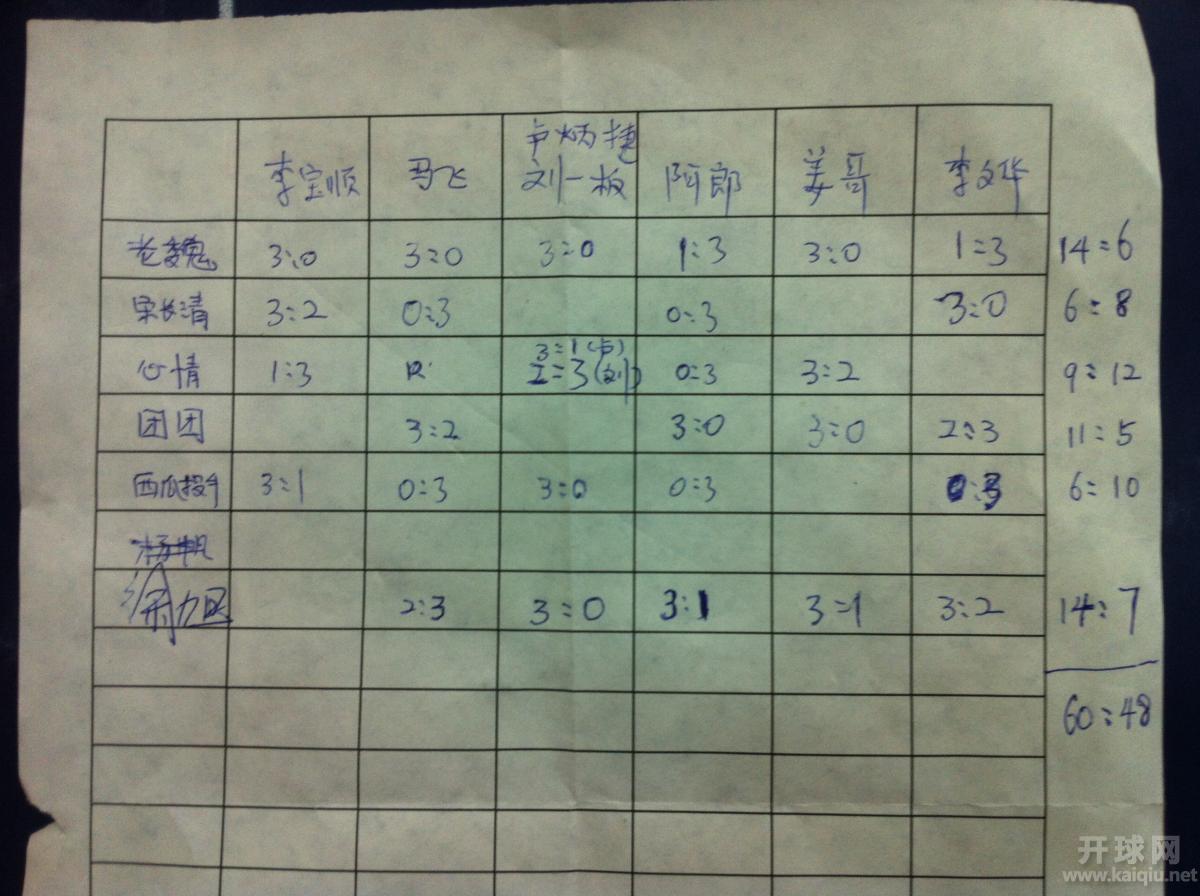 李宝顺 马飞 卢炳捷 刘一板 阿郎 姜哥 李文华
老魏 3:0 3:0 3:0 1:3 3:0 1:3 14:6
宋长清 3:2 0:3 0:3 3:0 6:8
心情 1:3 3:1(卢) 2:3(刘) 0:3 3:2 9:12
团团 3:2 3:0 3:0 2:3 11:5
西瓜投手 3:1 0:3 3:0 0:3 0:3 6:10
杨帆
2:3 3:0 3:1 3:1 3:2 14:7
60:48
开球网
www.kaiqiu.net